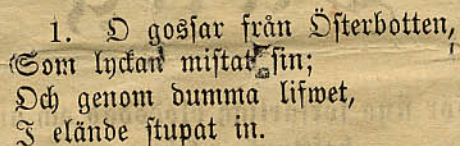 1. O gossar från Österbotten,
Som lyckan mistat sin;
Och genom dumma lifwet,
I elände stupat in.